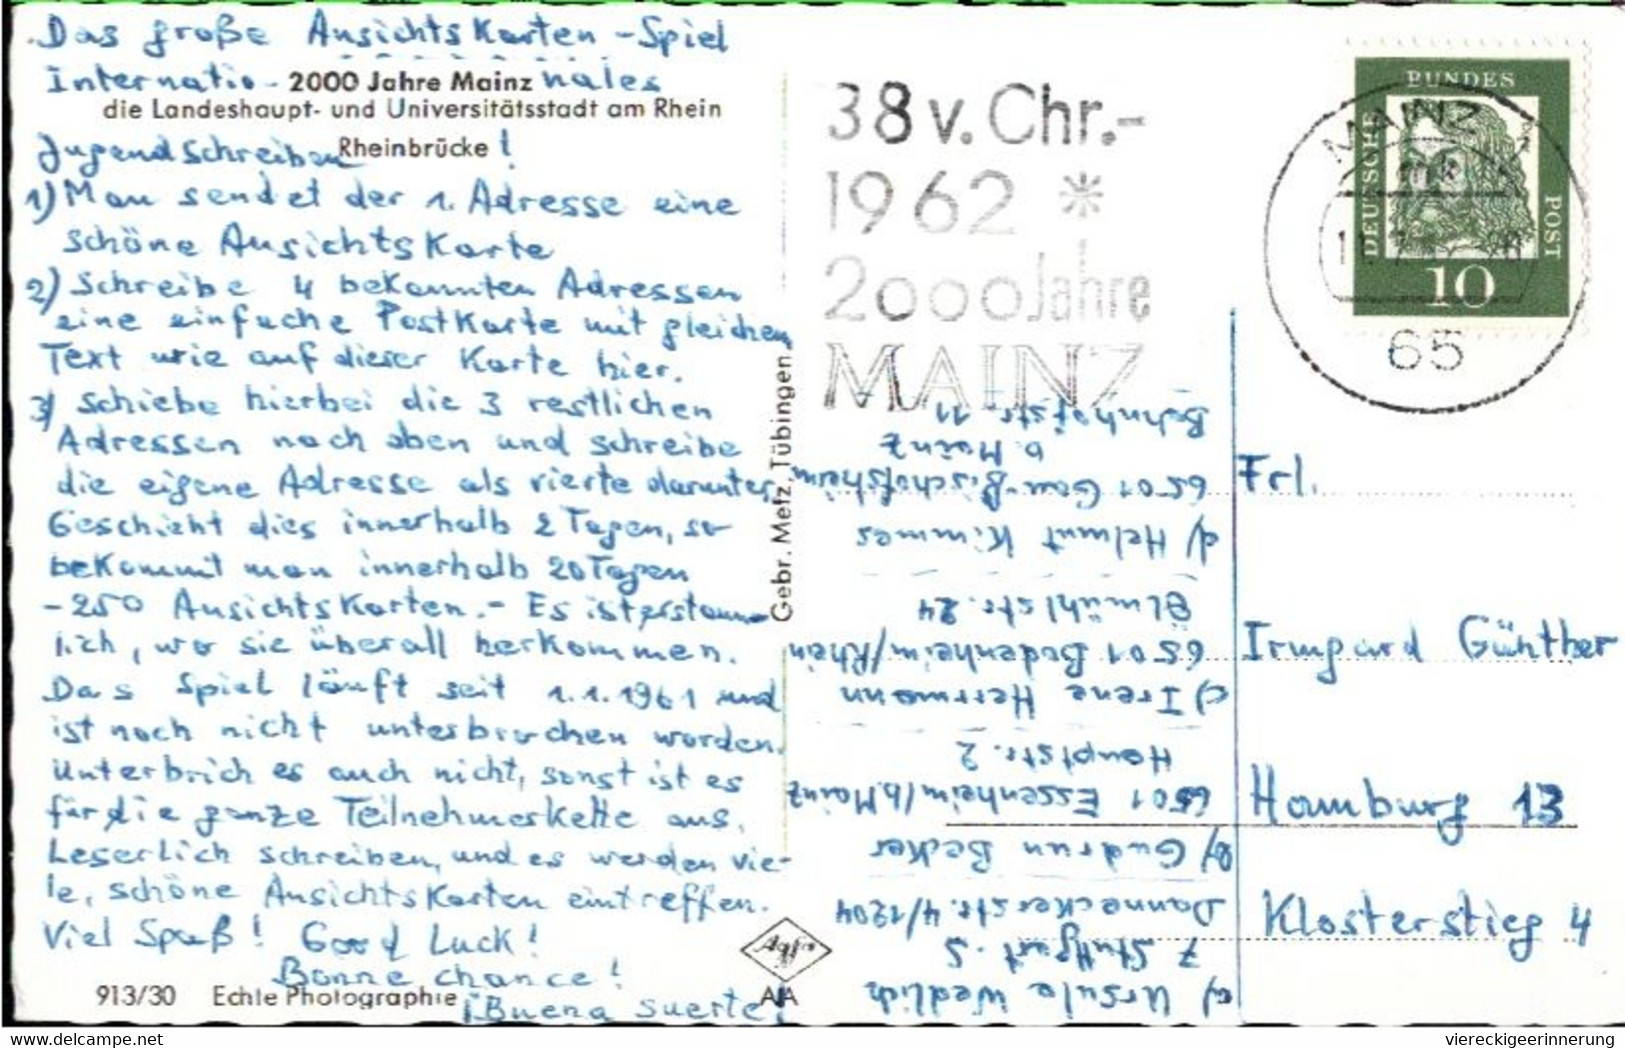 Das große Ansichtskarten-Spiel
Internatio- 2000 Jahre Mainz nales
die Landeshaupt- und Universitätsstadt am Rhein
Jugendschreiben Rheinbrücke !
1) Man sendet der 1. Adresse eine
schöne Ansichtskarte
2) Schreibe 4 bekannten Adressen
eine einfache Postkarte mit gleichem
Text wie auf dieser Karte hier.
3) Schiebe hierbei die 3 restlichen
Adressen nach oben und schreibe
die eigene Adresse als vierte darunter.
Geschieht dies innerhalb 2 Tagen, so
bekommt man innerhalb 20 Tagen
-250 Ansichtskarten.- Es ist erstaun-
lich, wo sie überall herkommen.
Das Spiel läuft seit 1.1.1961 und
ist noch nicht unterbrochen worden.
Unterbrich es auch nicht, sonst ist es
für die ganze Teilnehmerkette aus.
Leserlich schreiben, und es werden vie-
le, schöne Ansichtskarten eintreffen.
Viel Spaß! Good Luck!
Bonne chance!
¡Buena suerte!
913/30 Echte Photographie
Gebr. Metz, Tübingen
Agfa
AIA
38 v. Chr.-
1962 *
2000 Jahre
MAINZ
a) Ursula Wedlich
7 Stuttgart-S
Danneckerstr. 4/1204
b) Gudrun Becker
6501 Essenheim/b. Mainz
Hauptstr. 2
c) Irene Herrmann
6501 Bodenheim/Rhein
Ölmühlstr. 24
d) Helmut Kimmes
6501 Gau-Bischofsheim
b. Mainz
Bahnhofstr. 11
DEUTSCHE
BUNDES
POST
10
MAINZ
65
Frl.
Irmgard Günther
Hamburg 13
Klosterstieg 4
viereckigeerinnerung